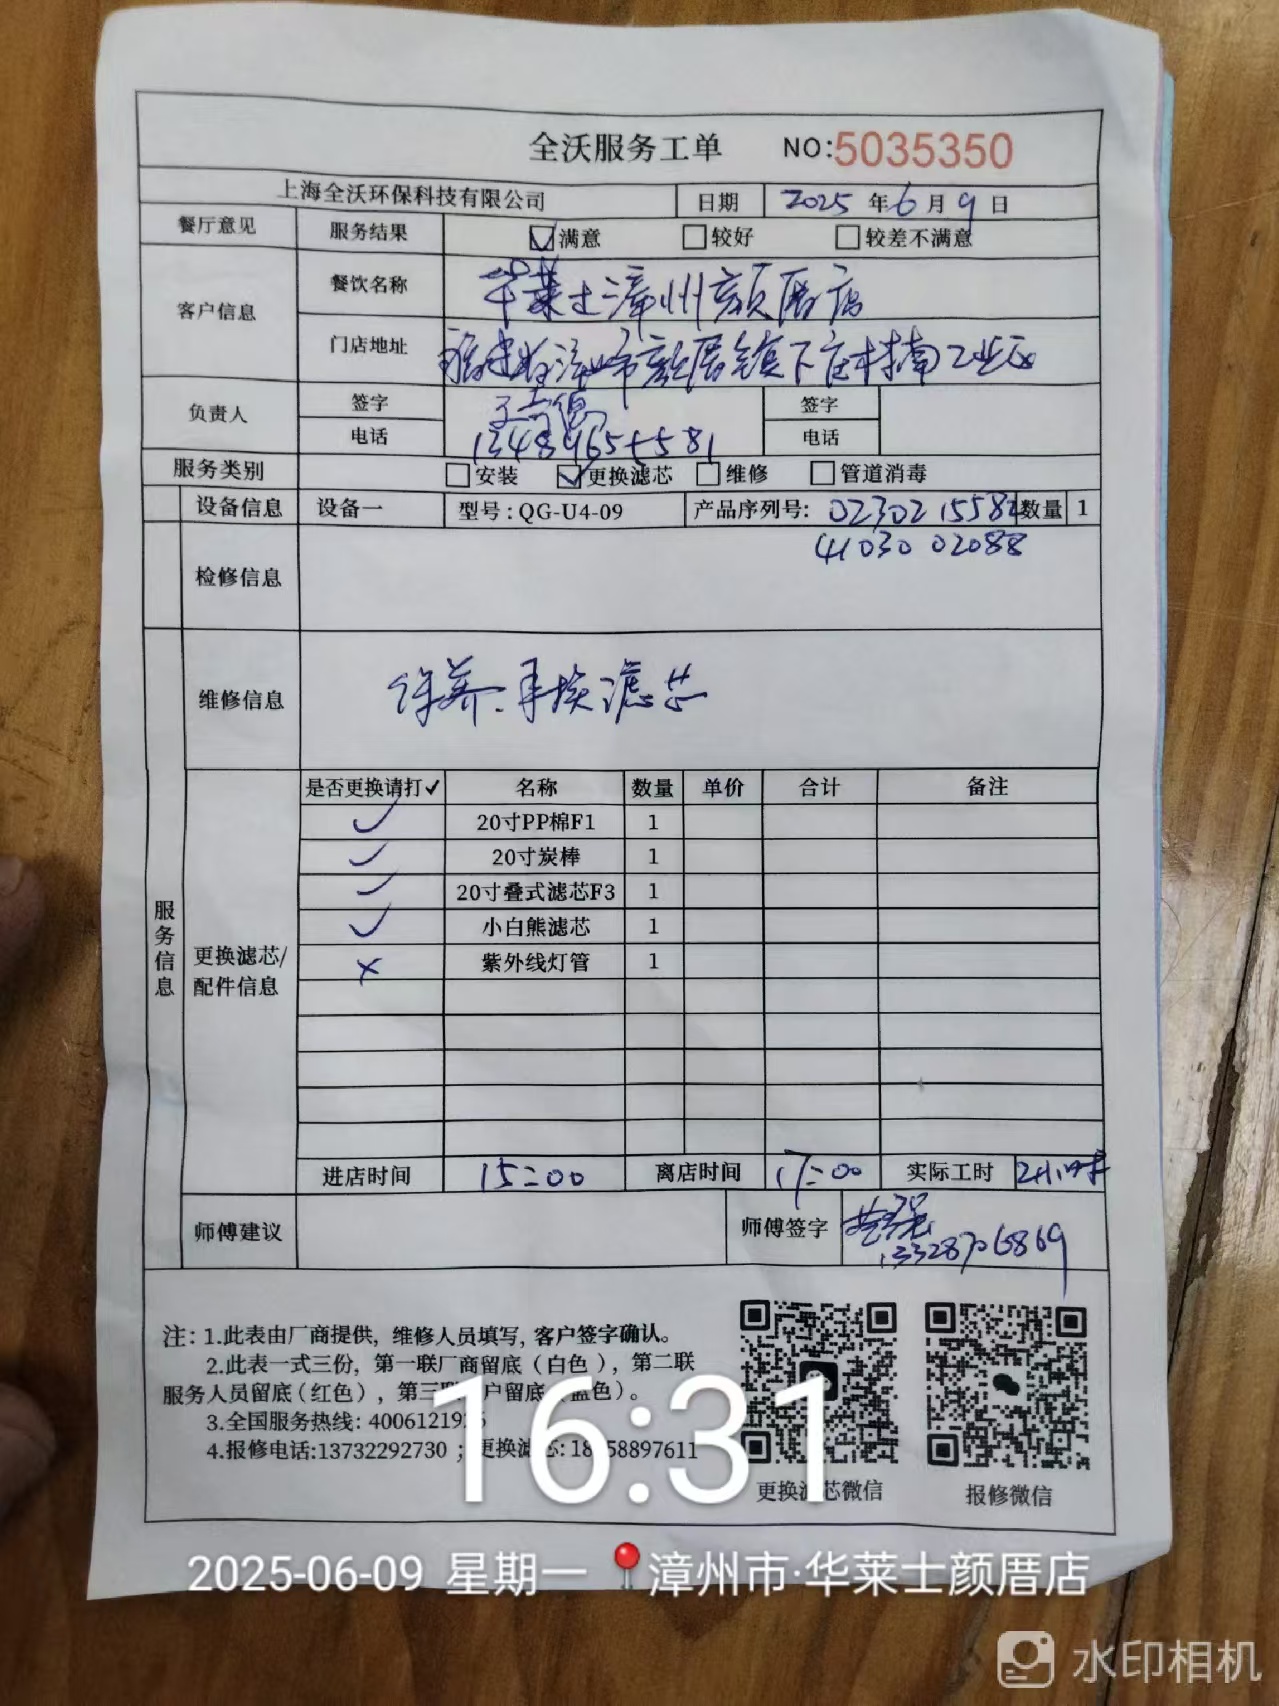 全沃服务工单 NO:5035350
上海全沃环保科技有限公司 日期 2025 年 6 月 9 日
餐厅意见 服务结果 ☑满意 □较好 □较差不满意
客户信息 餐饮名称 华莱士漳州颜厝店
门店地址 福建省漳州市颜厝镇下庄村指南工业区
负责人 签字 签字
电话 电话
服务类别 □安装 ☑更换滤芯 □维修 □管道消毒
设备信息 设备一 型号:QG-U4-09 产品序列号: 数量 1
41030 02088
检修信息
维修信息 保养.更换滤芯
是否更换请打✓ 名称 数量 单价 合计 备注
✓ 20寸PP棉F1 1
✓ 20寸炭棒 1
✓ 20寸叠式滤芯F3 1
✓ 小白熊滤芯 1
× 紫外线灯管 1
服务信息
更换滤芯/
配件信息
进店时间 15:00 离店时间 17:00 实际工时 2小时
师傅建议 师傅签字
13328706869
注: 1.此表由厂商提供, 维修人员填写, 客户签字确认。
2.此表一式三份, 第一联厂商留底 (白色), 第二联
服务人员留底 (红色), 第三联客户留底 (蓝色)。
3.全国服务热线: 40061219
4.报修电话:13732292730 ; 更换滤芯: 58897611
更换滤芯微信 报修微信
16:31
2025-06-09 星期一 漳州市·华莱士颜厝店
水印相机